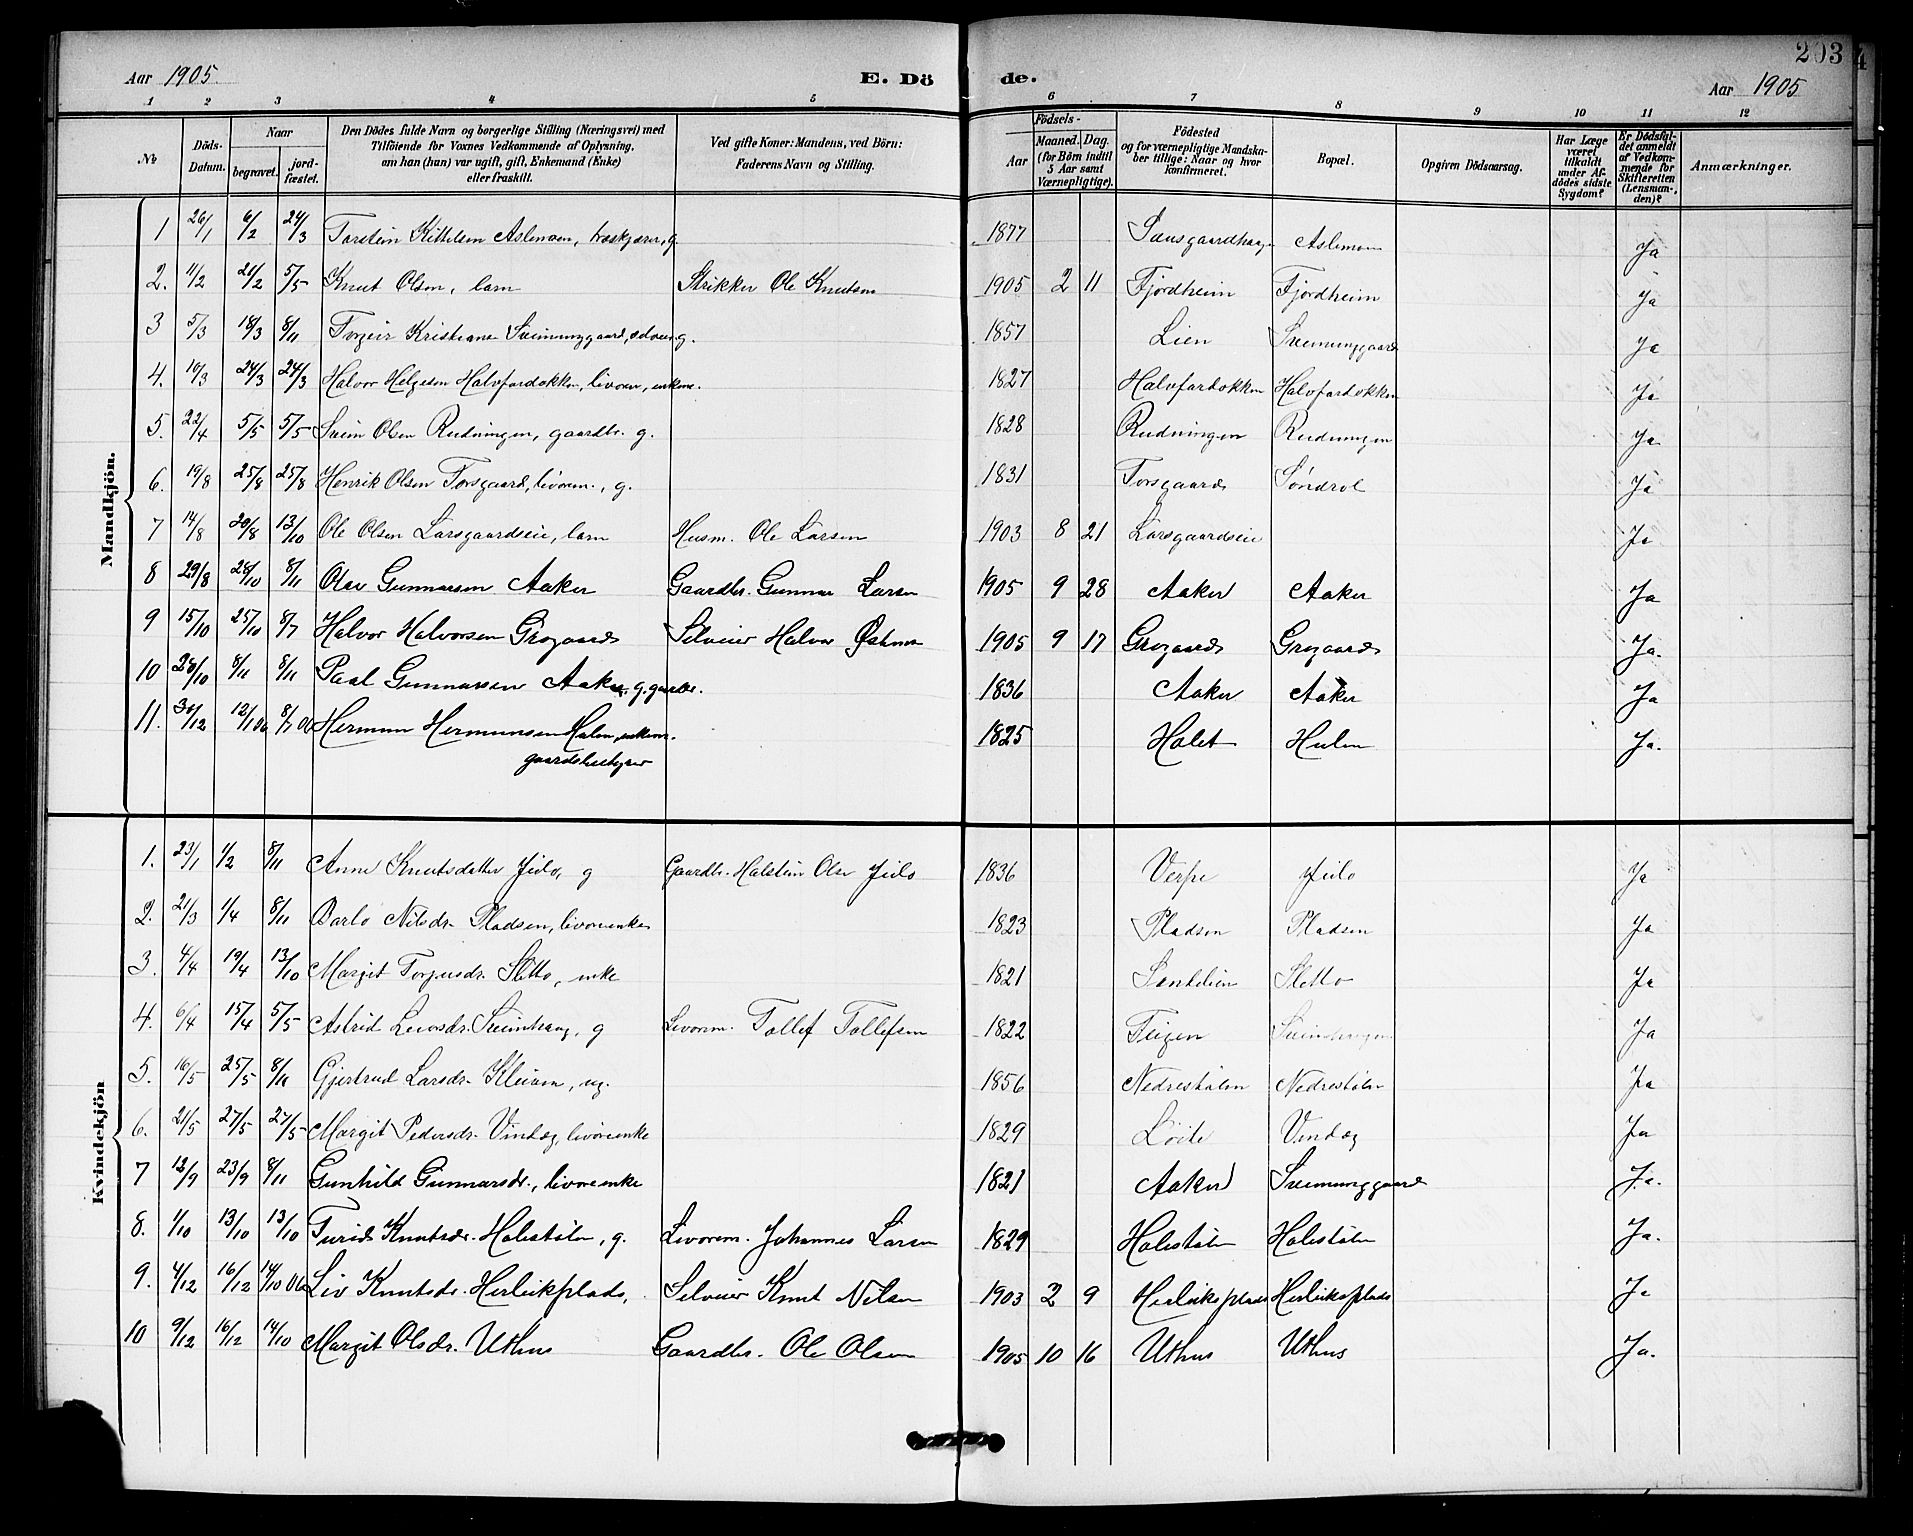 203
Aar 1905. E. Dö de. Aar 1905
1 2 3 4 5 6 7 8 9 10 11 12
№
Döds-Datum.
Naar
begravet. jord-fæstet.
Den Dödes fulde Navn og borgerlige Stilling (Næringsvei) med
Tilföiende for Voxnes Vedkommende af Oplysning,
om han (hun) var ugift, gift, Enkemand (Enke)
eller fraskilt.
Ved gifte Koner: Mandens, ved Börn:
Faderens Navn og Stilling.
Födsels-
Aar Maaned. Dag.
(for Börn indtil
5 Aar samt
Værnepligtige).
Födested
og for værnepligtige Mandska-
ber tillige: Naar og hvor
konfirmeret.
Bopæl.
Opgiven Dödsaarsag.
Har Læge
været
tilkaldt
under Af-
dödes sidste
Sygdom?
Er Dödsfal-
det anmeldt
af Vedkom-
mende for
Skifteretten
(Lensman-
den)?
Anmærkninger.
Mandkjön.
1 26/1 6/2 24/3 Torstein Kittelsen Aslemoen, g. 1877 Aslemoen Ja
2. 11/2 21/2 5/5 Knut Olsen, barn Strikker Ole Knutsen 1905 2 11 Fjordheim Fjordheim Ja
3 5/3 18/3 8/11 Torgeir Kristians. Sveinunggaard, g. 1857 Lien Sveinunggaard Ja
4. 10/3 24/3 24/3 Halvor Helgesen Halvfardokken, livørm, enkem. 1827 Halvfardokken Halvfardokken Ja
5. 22/4 5/5 5/5 Svein Olsen Rudningen, gaardbr. g. 1828 Rudningen Rudningen Ja
6. 19/8 25/8 25/8 Henrik Olsen Torsgaard, livørem., g. 1831 Torsgaard Søndrol Ja
7 14/8 20/8 13/10 Ole Olsen Larsgaardseie, barn Husm. Ole Larsen 1903 8 21 Larsgaardseie Ja
8 29/8 28/10 8/11 Olav Gunnarsen Aaker Gaardbr. Gunnar Larsen 1905 9 28 Aaker Aaker Ja
9 15/10 25/10 8/7 Halvor Halvorsen Grogaard Selveier Halvor 1905 9 17 Grogaard Grogaard Ja.
10 28/10 8/11 8/11 Paal Gunnarsen Aaker, g. gaardbr. 1836 Aaker Aaker Ja
11. 30/12 12/1 06 8/7 06 Hermun Hermunsen Holen, enkem. 1825 Holet Hulen Ja.
Kvindekjön
1. 23/1 1/2 8/11 Anne Knutsdatter Juvlo, g Gaardbr. Halstein Olsen Juvlo 1836 Verpe Juvlo Ja
2. 21/3 1/4 8/11 Barlo Nilsdr. Pladsen, livøreenke 1823 Pladsen Pladsen Ja
3. 4/4 19/4 13/10 Margit Torgersdr. Sletto, enke 1821 Sletto Ja
4. 6/4 15/4 5/5 Astrid Leivsdr. Sveinhaug, g Livørem. Tollef Tollefsen 1822 Teigen Sveinhaugen Ja
5. 16/5 25/5 8/11 Gjertrud Larsdr. Kleiven, ug. 1856 Nedrestølen Nedrestølen Ja
6. 21/5 27/5 27/5 Margit Pedersdr. Vindæg, livøreenke 1829 Løite Vindæg Ja
7 12/9 23/9 8/11 Gunhild Gunnarsdr., livøreenke 1821 Aaker Sveinunggaard Ja.
8. 1/10 13/10 13/10 Turid Knutsdr. Holestølen, g. Livørem. Johannes Larsen 1829 Holestølen Holestølen Ja.
9. 4/12 16/12 14/10 06 Liv Knutsdr. Herleikplads, Selveier Knut Nilsen 1903 2 9 Herleiksplads Herleiksplads Ja
10 9/12 16/12 14/10 Margit Olsdr. Uthus Gaardbr. Ole Olsen 1905 10 16 Uthus Uthus Ja.